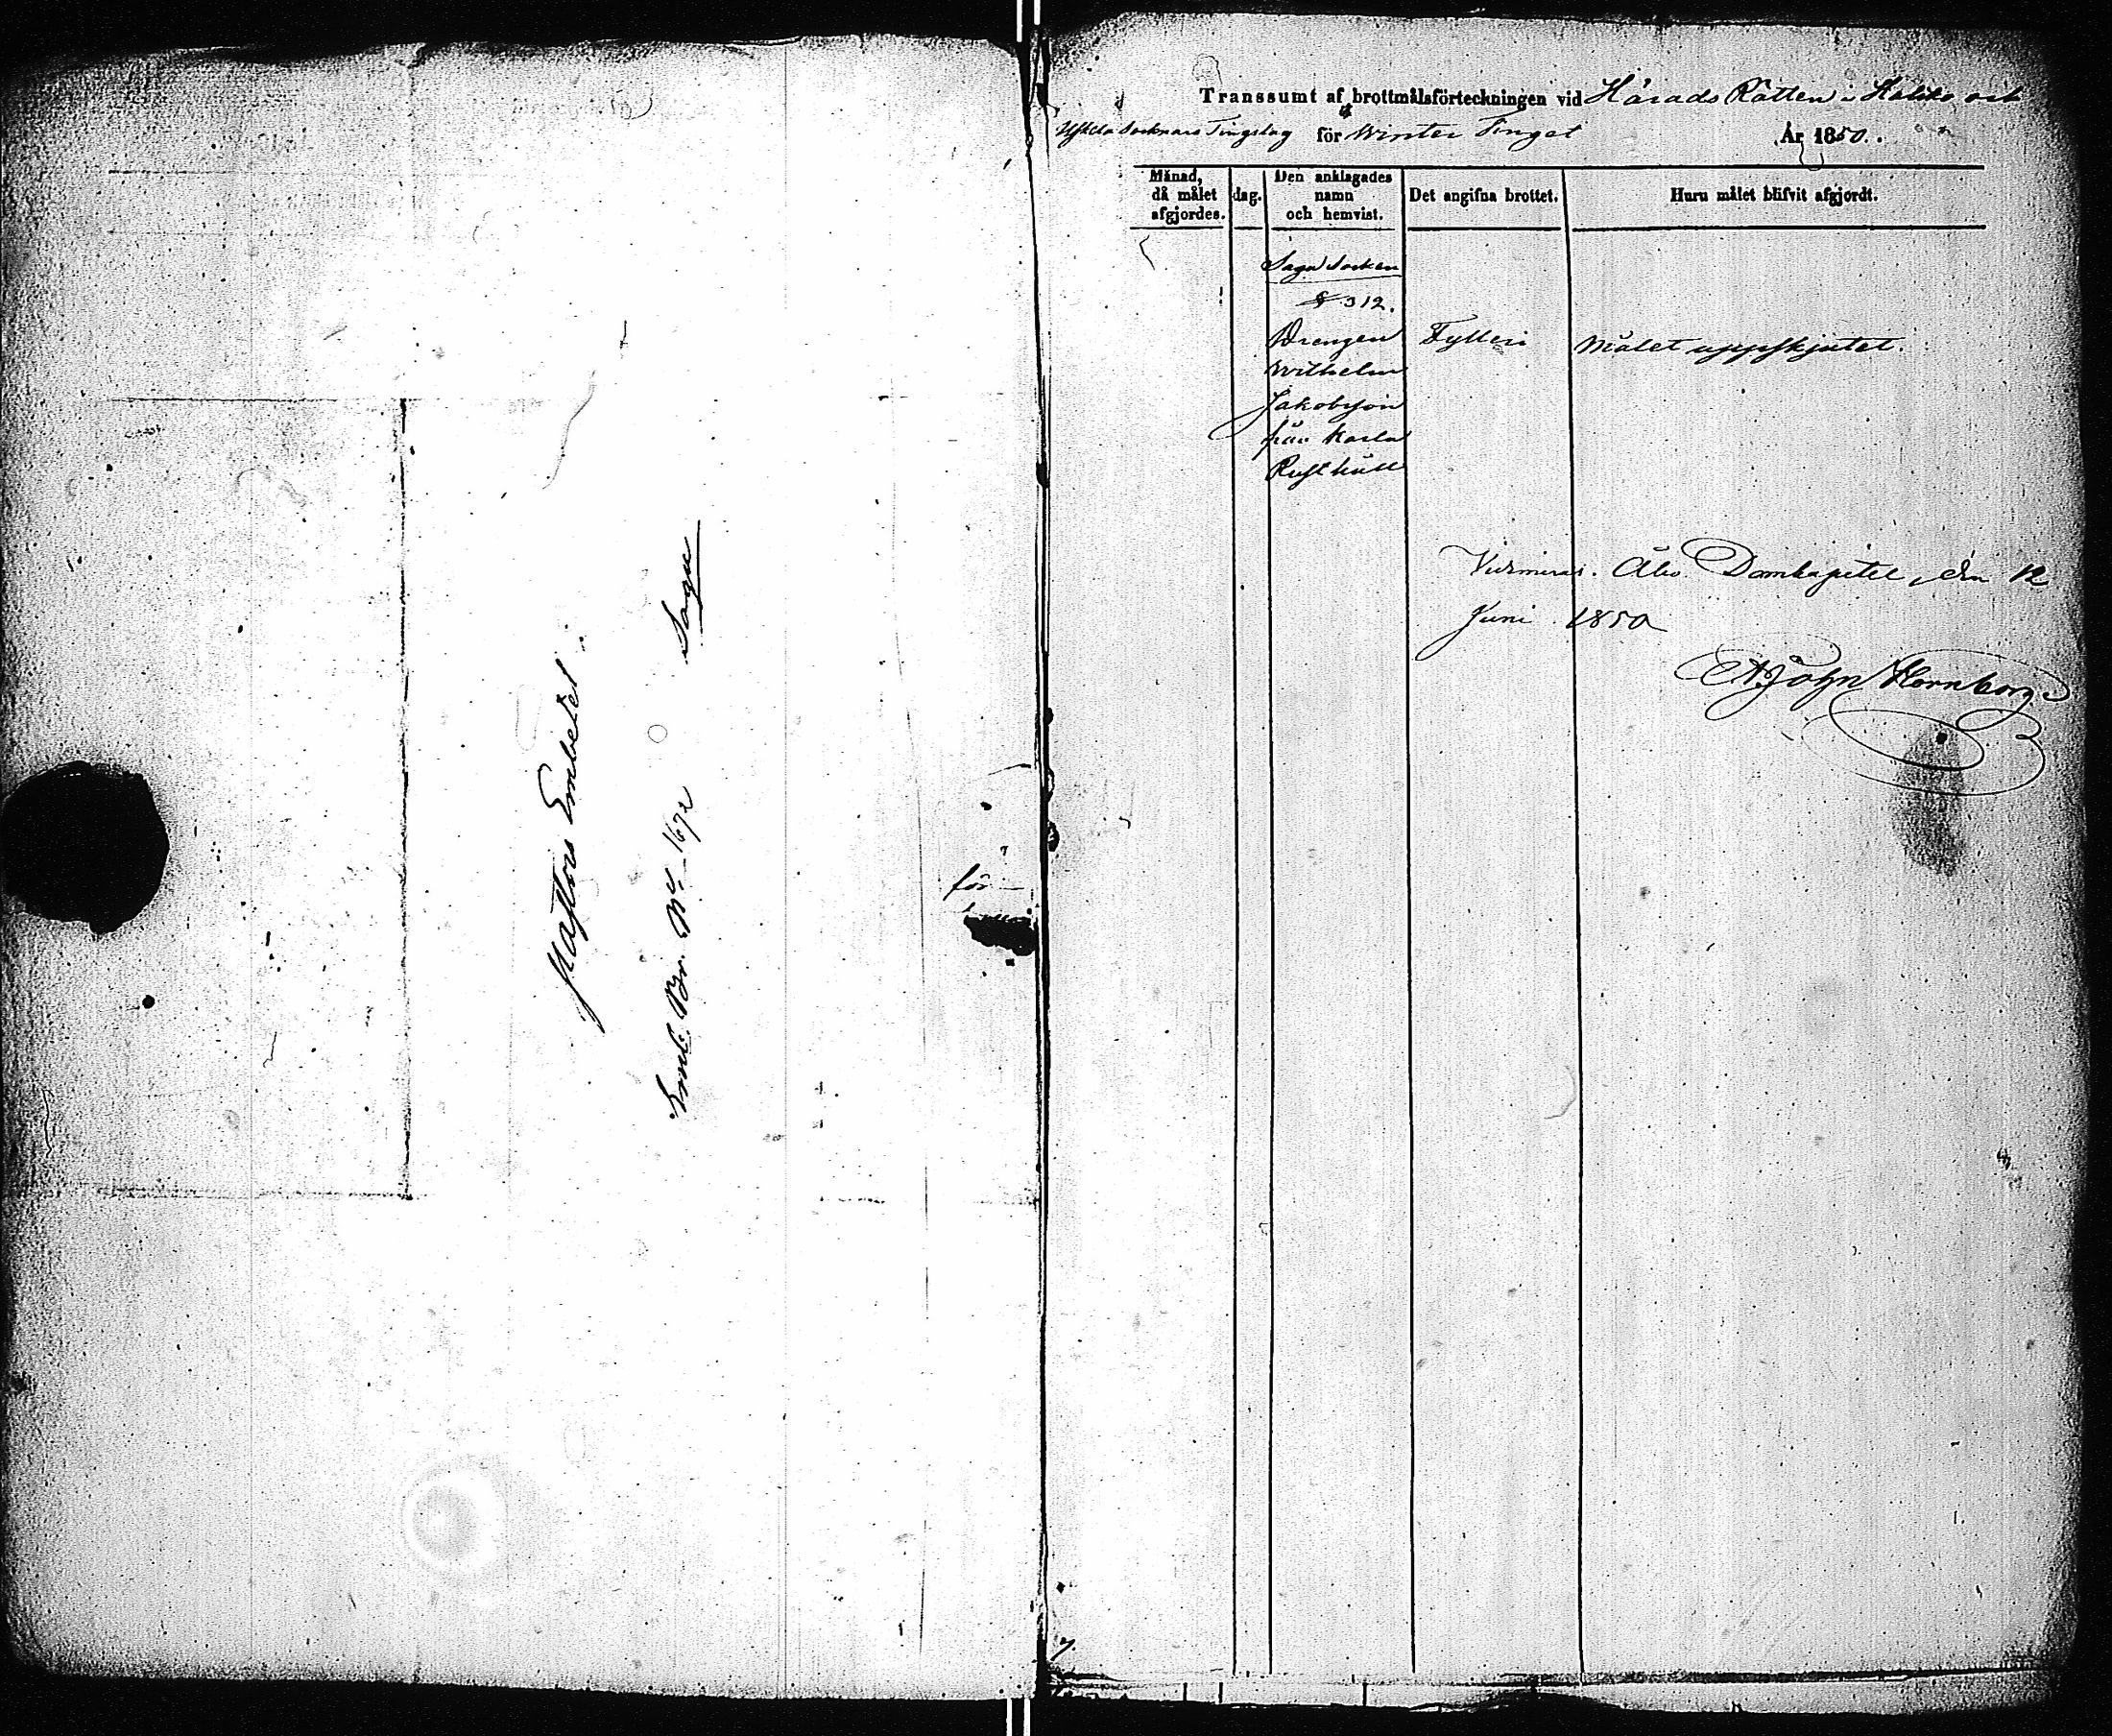 Pastors Embetet
Sagu
Emb. Br. No 1672
för
Transsumt af brottmålsförteckningen vid Härads Rätten i Haliko och
Uskela Socknars Tingslag för Winter Tinget År 1850.
Månad, då målet afgjordes.
dag.
Den anklagades namn och hemvist.
Det angifna brottet.
Huru målet blifvit afgjordt.
Sagu Socken
§ 312.
Drengen Fylleri Målet uppskjutet.
Wilhelm
Jakobsson
från Karla
Rusthåll
Vidimeras. Åbo Domkapitel, den 12
Juni 1850
John Hornborg